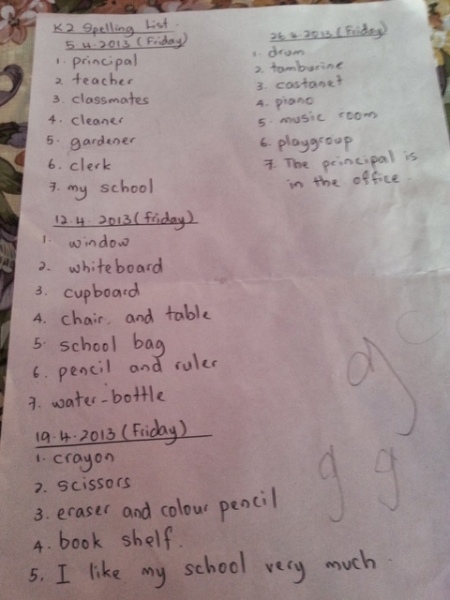 K2 Spelling List.
5.4.2013 (Friday)
1. principal
2. teacher
3. classmates
4. cleaner
5. gardener
6. clerk
7. my school
12.4.2013 (Friday)
1. window
2. whiteboard
3. cupboard
4. chair and table
5. school bag
6. pencil and ruler
7. water-bottle
19.4.2013 (Friday)
1. crayon
2. scissors
3. eraser and colour pencil
4. book shelf.
5. I like my school very much.
26.4.2013 (Friday)
1. drum
2. tamburine
3. castanet
4. piano
5. music room
6. playgroup
7. The principal is
in the office.
g
g g